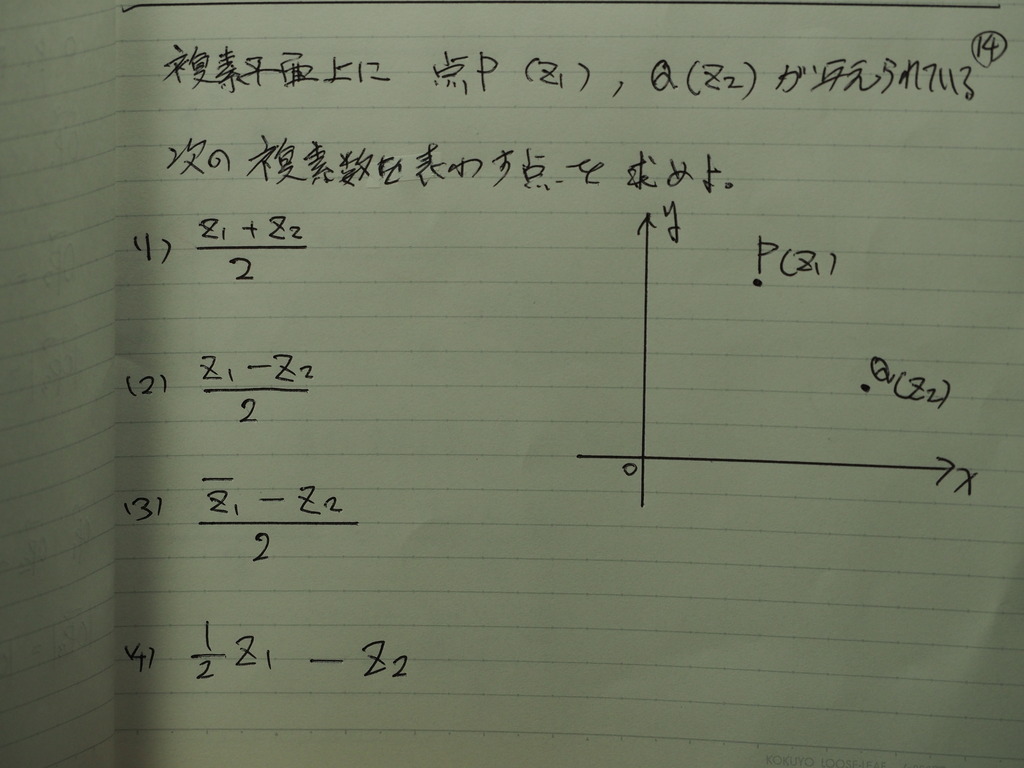 ⑭
複素平面上に 点P (z₁) , Q(z₂) が与えられている
次の複素数を表わす点を求めよ。
(1) (z₁ + z₂)/2
(2) (z₁ − z₂)/2
(3) (z̄₁ − z₂)/2
(4) 1/2 z₁ − z₂
y
P(z₁)
Q(z₂)
O
x
KOKUYO LOOSE-LEAF